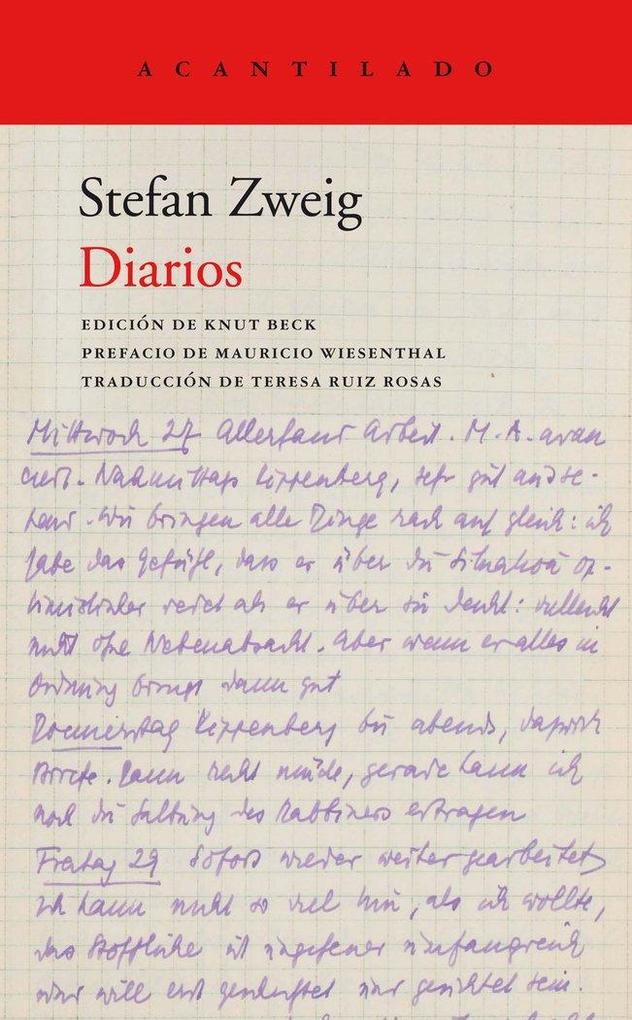 ACANTILADO
Stefan Zweig
Diarios
EDICIÓN DE KNUT BECK
PREFACIO DE MAURICIO WIESENTHAL
TRADUCCIÓN DE TERESA RUIZ ROSAS
Mittwoch 27 Allerhand Arbeit. M. A. avan
ciert. Nachmittags Kippenberg, sehr gut
Wir bringen alle Dinge rasch auf gleich: ich
habe das Gefühl, dass er über die Situation op-
timistischer redet als er über sie denkt: vielleicht
nicht ohne Nebenabsicht. Aber wenn er alles in
Ordnung bringt dann gut
Donnerstag Kippenberg bis abends, dazwisch
Briefe. Dann recht müde, gerade kann ich
noch die des Rabbiners ertragen
Freitag 29 Sofort wieder weitergearbeitet
Ich kann nicht so viel hin, als ich wollte,
das Stoffliche ist ungeheuer umfangreich
und will erst gesichtet sein.